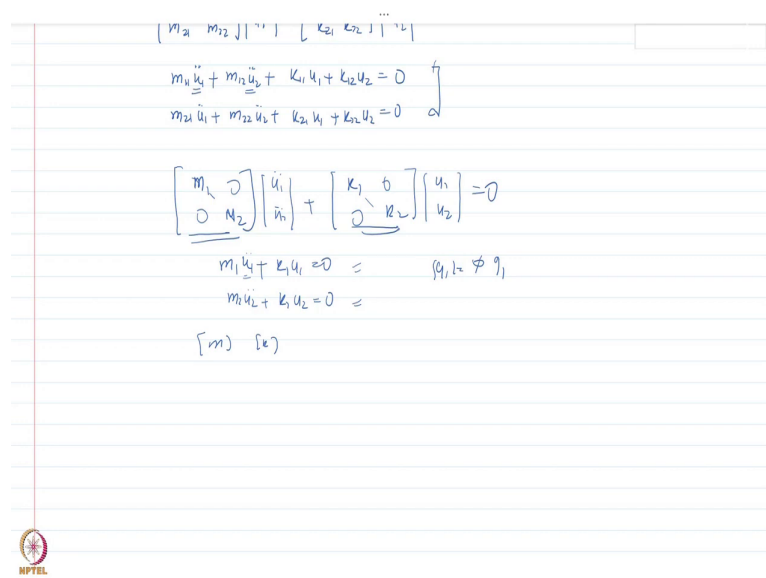 ...
[m21 m22] [k21 k22]
m11ü1 + m12ü2 + k11u1 + k12u2 = 0
m21ü1 + m22ü2 + k21u1 + k22u2 = 0
[m1 0 0 m2] [ü1 ü2] + [k1 0 0 k2] [u1 u2] = 0
m1ü1 + k1u1 = 0 = {u1} = φ q1
m2ü2 + k1u2 = 0 =
[m] [k]
NPTEL